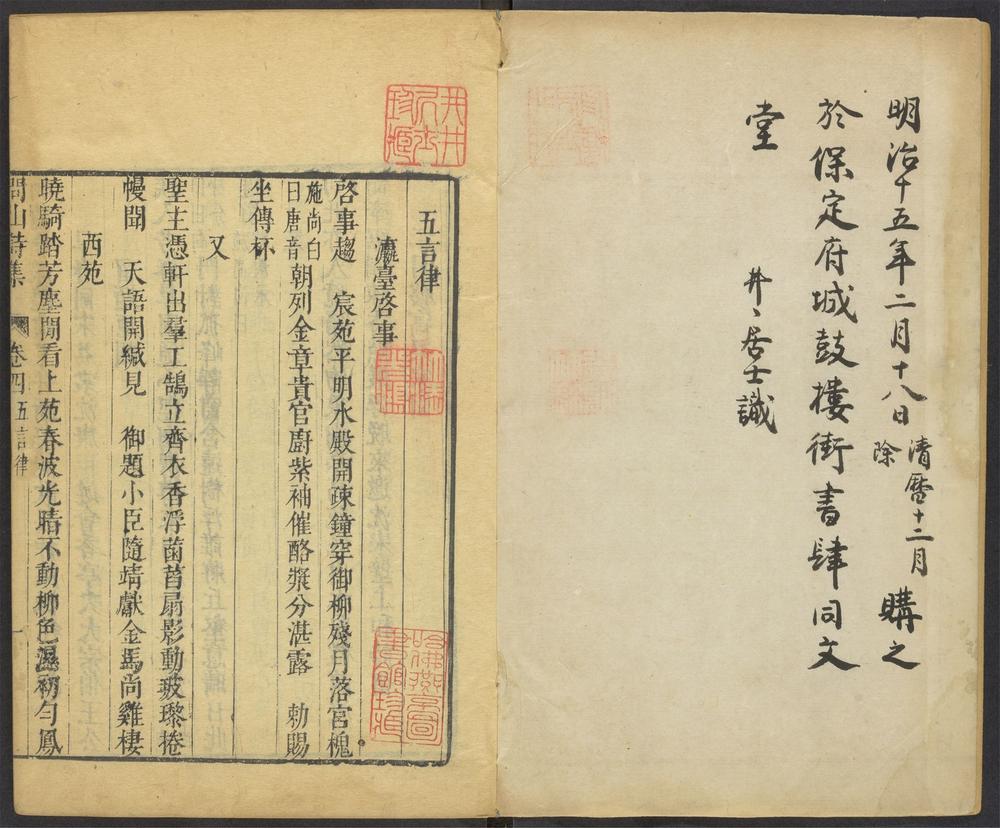 明治十五年二月十八日清曆十二月除購之
於保定府城鼓樓街書肆同文
堂
井〻居士識
五言律
瀛臺啓事
啓事趨　宸苑平明水殿開疎鐘穿御柳殘月落宮槐
施尚白曰唐音朝列金章貴官廚紫袖催酪漿分湛露　勅賜
坐傳杯
又
聖主憑軒出羣工鵠立齊衣香浮菡萏扇影動玻瓈捲
幔聞　天語開緘見　御題小臣隨靖獻金馬尚雞棲
西苑
曉騎踏芳塵閒看上苑春波光晴不動柳色濕初勻鳳
問山詩集　卷四五言律　一
井井居士珍藏
哈佛燕京圖書館珍藏